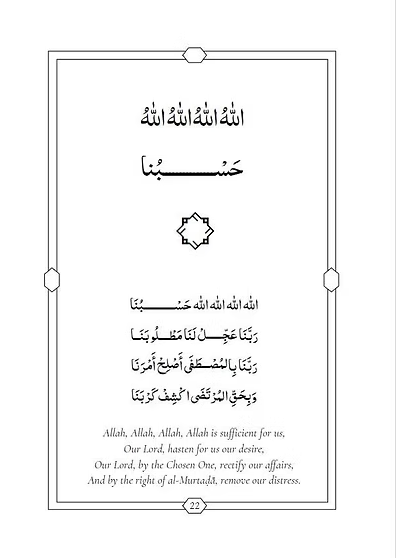 اللهُ اللهُ اللهُ اللهُ
حَسْـــــــبُنا
الله الله الله الله حَسْـــــبُنَا
رَبَّنَا عَجِّـــلْ لَنَا مَطْـلُـوبَنَـا
رَبَّنَا بِالمُصْـطَفَى أَصْلِحْ أَمْرَنَا
وَبِحَقِّ المُرْتَضَى اكْشِفْ كَرْبَنَا
Allah, Allah, Allah, Allah is sufficient for us,
Our Lord, hasten for us our desire,
Our Lord, by the Chosen One, rectify our affairs,
And by the right of al-Murtaḍā, remove our distress.
22